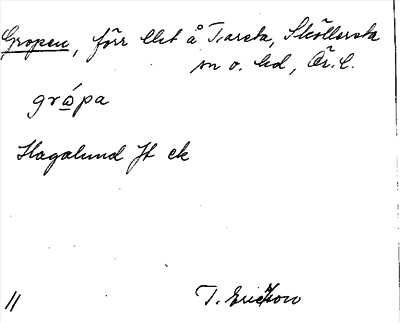 Gropen, förr llet å Tarsta, Sköllersta
sn o. hd, Ör. l.
grópa
Hagalund Jf ek
11 T. Ericsson